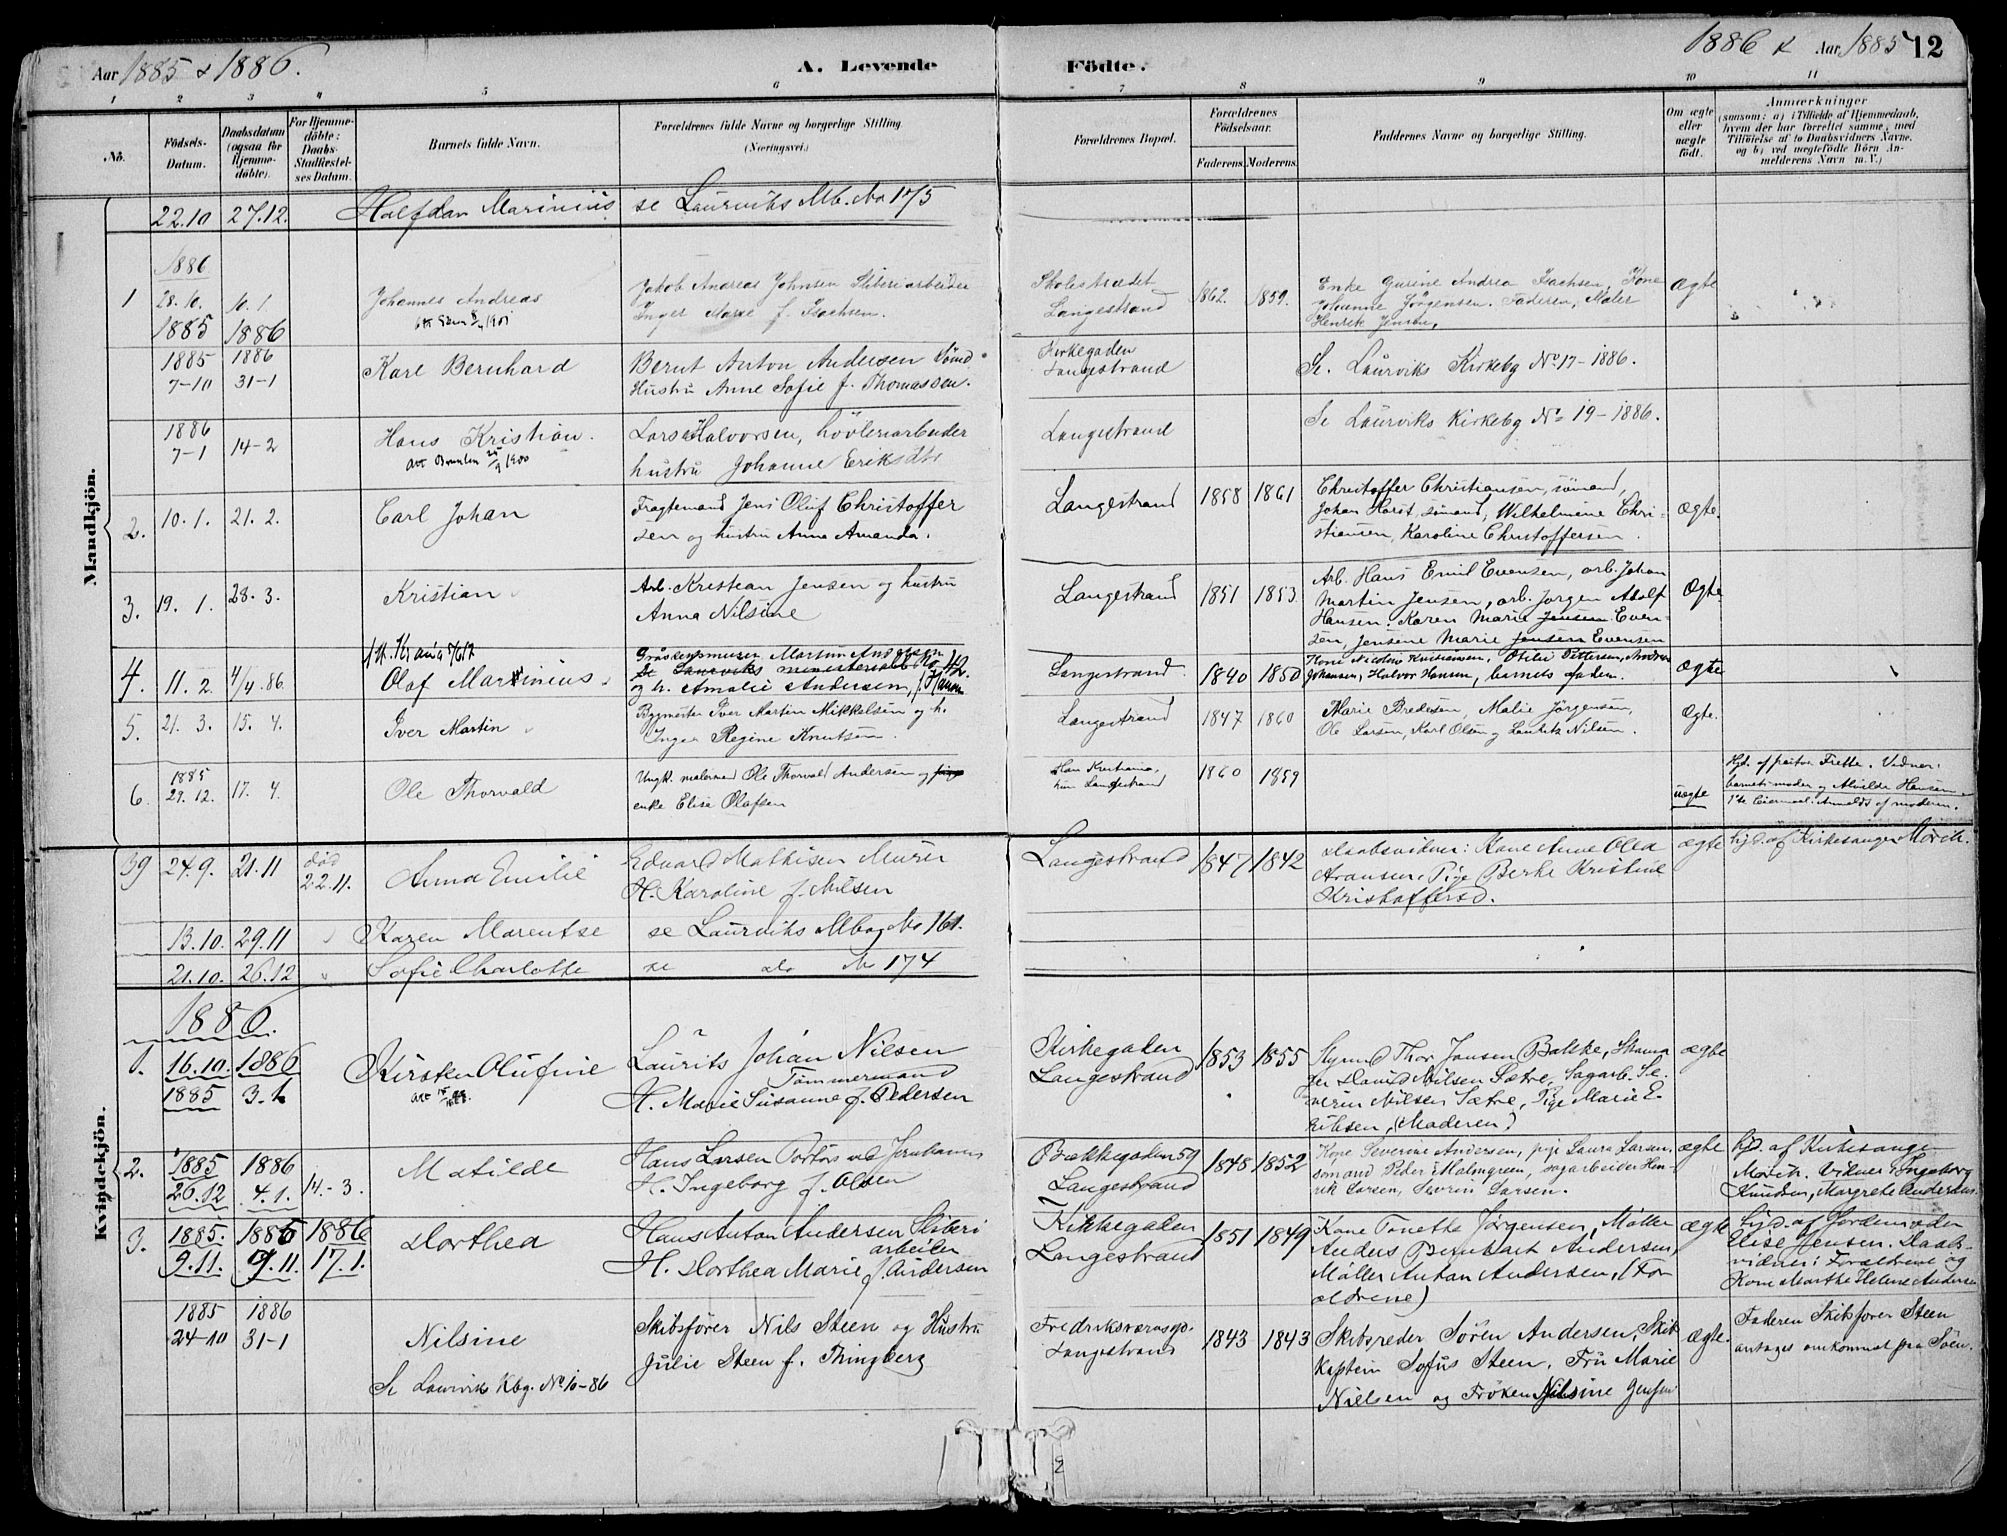 Aar 1885 & 1886.
A. Levende Födte.
1886 & Aar 1885
12
1 2 3 4 5 6 7 8 9 10 11
No.
Födsels-
Datum.
Daabsdatum
(ogsaa for
Hjemme-
döbte).
For Hjemme-
döbte:
Daabs-
Stadfæstel-
ses Datum.
Barnets fulde Navn.
Forældrenes fulde Navne og borgerlige Stilling
(Næringsvei.)
Forældrenes Bopæl.
Forældrenes
Födselsaar.
Faderens. Moderens.
Faddernes Navne og borgerlige Stilling.
Om ægte
eller
uægte
födt.
Anmærkninger
(saasom: a) i Tilfælde af Hjemmedaab,
hvem der har forrettet samme, med
Tilföielse af to Daabsvidners Navne.
og b) ved uægtefödte Börn An-
melderens Navn m. V.)
Mandkjön.
22.10 27.12. Halfdan Marinius se Laurviks Mb. No 175
1886
1 28.10. 10.1 Johannes Andreas
1885 1886
Jakob Andreas Johnsen Sliberiarbeider
Inger Marie f. Isachsen.
Skolestrædet
Langestrand
1862. 1859.
Enke Gurine Andrea Isachsen, Kone
Johanne Jörgensen. Faderen, Maler
Henrik Jensen,
Ægte
1885 1886
7-10 31-1
Karl Bernhard
Bernt Anton Andersen Sömd
Hustru Anne Sofie f. Thomassen.
Kirkegaden
Langestrand
Se Laurviks Kirkebg No 17-1886.
1886
7-1 14-2
Hans Kristian.
att Brunlan 25/9 1900
Lars Halvorsen, hövleriarbeider
hustru Johanne Eriksdtr
Langestrand
Se Laurviks Kirkebg No 19-1886.
2. 10.1. 21.2. Carl Johan
Fragtemand Jens Oluf Christoffer
sen og hustru Anna Amanda.
Langestrand 1858 1861
Christoffer Christiansen, sömand,
Johan Horst, sömand, Wilhelmine Chri-
stiansen, Karoline Christoffersen.
Ægte.
3. 19.1. 28.3. Kristian
Arb. Kristian Jensen og hustru
Anna Nilsine
Langestrand 1851 1853
Arb. Hans Emil Evensen, arb. Johan
Martin Jensen, arb. Jörgen Adolf
Hansen. Karen Marie Jensen Even-
sen, Jensine Marie Jensen Evensen
Ægte
4. 11.2. 4/4.86. Olaf Martinius
Gråstensmurer Martin Andersen
Se Laurviks ministerialb No 42.
og h. Amalie Andersen, f. Hansen
Langestrand. 1840 1850
Kone Nicoline Kristiansen, Otilie Pettersen, Andreas
Johansen, Halvor Hansen, barnets fader.
Ægte
5. 21.3. 15.4. Iver Martin
Bygmester Iver Martin Mikkelsen og h.
Inga Regine Knutsen
Langestrand 1847 1860
Marie Bredesen, Malie Jörgensen,
Ole Larsen, Karl Olsen og Lauritz Nilsen.
Ægte.
1885
6. 29.12. 17.4. Ole Thorvald
Ungk. malersvend Ole Thorvald Andersen og pige
enke Elise Olafsen
Han Kristiania,
hun Langestrand
1860 1859
uægte
Hjd. af pastor Frette. Vidner:
barnets moder og Alvilde Hansen
1ste leiermaal. Anmeldt af moderen.
Kvindekjön.
39 24.9. 21.11 död 22.11. Anna Emilie
Edvard Mathisen Murer
H. Karoline f. Nilsen
Langestrand 1847 1842
Daabsvidner: Kone Anne Olea
Aronsen, Pige Berthe Kristine
Kristoffersd.
ægte
hjd. af Kirkesanger Mörch.
13.10. 29.11 Karen Marentse se Laurviks Mbog No 161.
21.10. 26.12 Sofie Charlotte se do No 174
1886.
1. 16.10. 1886
1885 3.1
Kirsten Olufine
Laurits Johan Nilsen
Tömmermand
H. Marie Susanne f. Pedersen
Kirkegaden
Langestrand
1853 1855
Styrmd Thor Jansen Bakke, Skoma
ger David Nilsen Sætre, Sagarb. Se-
verin Nilsen Sætre, Pige Marie E-
riksen, (Moderen)
ægte
2. 1885 1886
26.12 4.1. 14.-3. Matilde
Hans Larsen Portör ved Jernbanen
H. Ingeborg f. Olsen
Bækkegaden 59
Langestrand
1848 1852
Kone Severine Andersen, pige Laura Larsen
sömand Peder Malmgreen, sagarbeider Hen-
rik Larsen, Severin Larsen.
ægte
hjd. af Kirkesanger
Mörch. Vidner: Ingeborg
Knudsen, Margrete Andersen.
3. 1885. 1885 1886
9.11. 9.11. 17.1. Dorthea
Hans Anton Andersen Sliberi
arbeider
H. Dorthea Marie f. Andersen
Kirkegaden
Langestrand
1851 1849
Kone Tonette Jörgensen, Möller
Anders Bernhart Andersen,
Möller Anton Andersen, (For
ældrene)
ægte
hjd. af Jordemoder
Elise Jensen. Daabs-
vidner: Forældrene og
Kone Marthe Helene Andersen
1885 1886
24-10 31-1
Nilsine
Se Laurviks Kbg. No 10-86
Skibsförer Nils Steen og Hustru
Julie Steen f. Thingberg
Fredriksværnsgd.
Langestrand
1843 1843
Skibsreder Sören Andersen, Skibs
Kaptein Sofus Steen, Fru Marie
Nielsen og Fröken Nilsine Jensen
ægte
Faderen Skibsförer Steen
antages omkommet paa Söen.